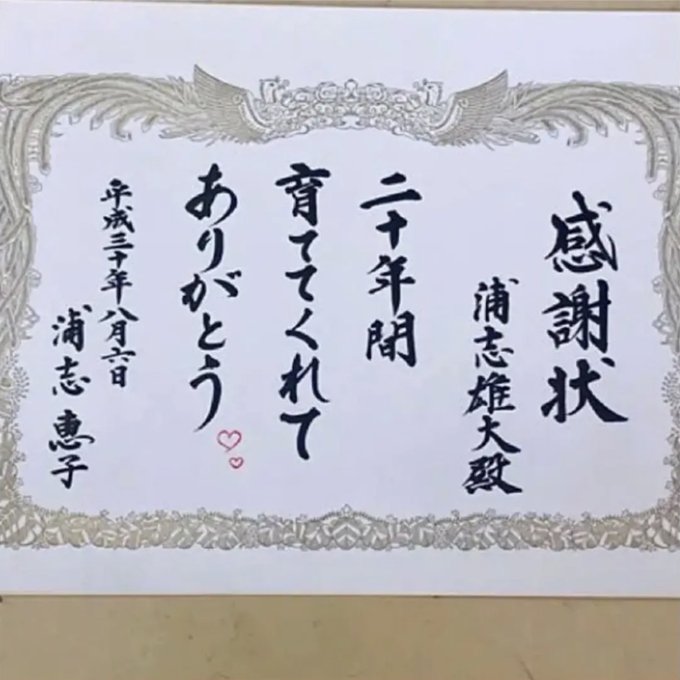 感謝状
浦志雄大殿
二十年間
育ててくれて
ありがとう
平成三十年八月六日
浦志恵子